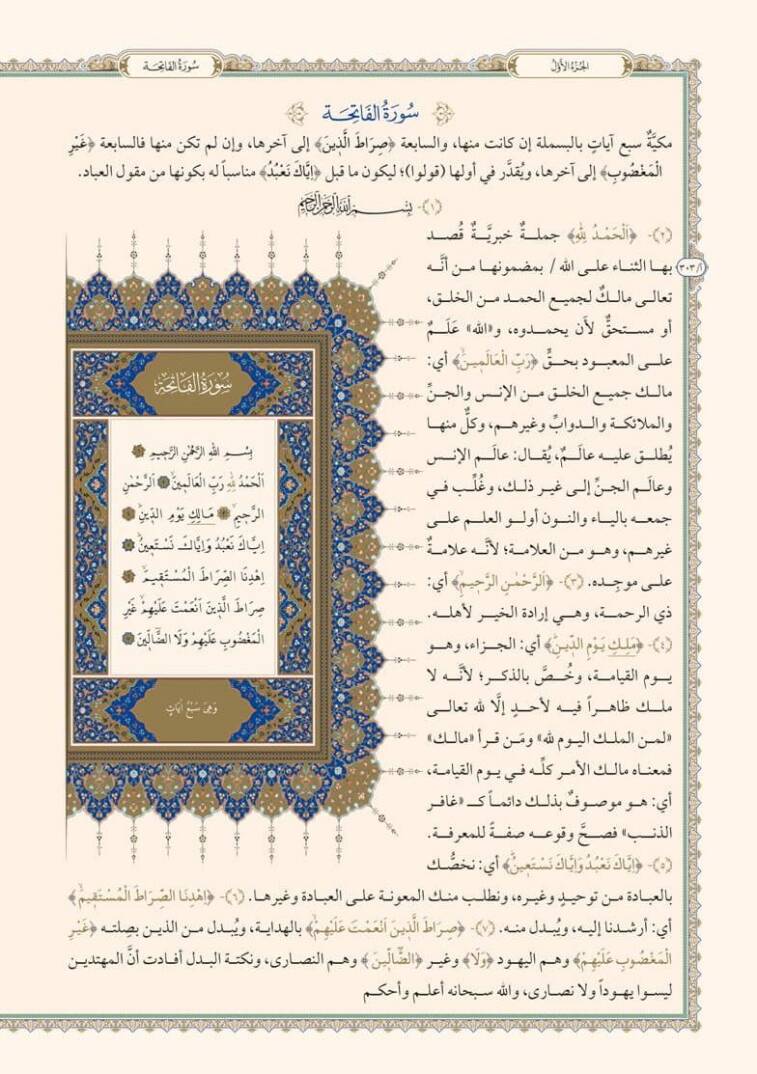 الجزء الأول
سورة الفاتحة
سُورَةُ الفَاتِحَة
مكيَّةٌ سبع آياتٍ بالبسملة إن كانت منها، والسابعة ﴿صِرَاطَ الَّذِينَ﴾ إلى آخرها، وإن لم تكن منها فالسابعة ﴿غَيْرِ
الْمَغْضُوبِ﴾ إلى آخرها، ويُقدَّر في أولها (قولوا)؛ ليكون ما قبل ﴿إِيَّاكَ نَعْبُدُ﴾ مناسباً له بكونها من مقول العباد.
(١)- بِسْمِ اللهِ الرَّحْمٰنِ الرَّحِيمِ
(٢)- ﴿اَلْحَمْدُ لِلّٰهِ﴾ جملةٌ خبريَّةٌ قُصد
بها الثناء على الله / بمضمونها من أنَّه
أ/٣٠٣
تعالى مالكٌ لجميع الحمد من الخلق،
أو مستحقٌّ لأن يحمدوه، و«الله» عَلَمٌ
على المعبود بحقٍّ ﴿رَبِّ الْعَالَمِينَۙ﴾ أي:
مالك جميع الخلق من الإنس والجنِّ
والملائكة والدوابِّ وغيرهم، وكلٌّ منها
يُطلق عليه عالَمٌ، يُقال: عالَم الإنس
وعالَم الجنِّ إلى غير ذلك، وغُلِّب في
جمعه بالياء والنون أولو العلم على
غيرهم، وهو من العلامة؛ لأنَّه علامةٌ
على موجِده. (٣)- ﴿اَلرَّحْمٰنِ الرَّحِيمِۙ﴾ أي:
ذي الرحمة، وهي إرادة الخير لأهله.
(٤)- ﴿مَلِكِ يَوْمِ الدِّينِۜ﴾ أي: الجزاء، وهو
يوم القيامة، وخُصَّ بالذكر؛ لأنَّه لا
ملك ظاهراً فيه لأحدٍ إلَّا لله تعالى
«لمن الملك اليوم لله» ومَن قرأ «مالك»
فمعناه مالك الأمر كلِّه في يوم القيامة،
أي: هو موصوفٌ بذلك دائماً كـ «غافر
الذنب» فصحَّ وقوعه صفةً للمعرفة.
(٥)- ﴿إِيَّاكَ نَعْبُدُ وَإِيَّاكَ نَسْتَعِينُۜ﴾ أي: نخصُّك
بالعبادة من توحيدٍ وغيره، ونطلب منك المعونة على العبادة وغيرها. (٦)- ﴿اِهْدِنَا الصِّرَاطَ الْمُسْتَقِيمَۙ﴾
أي: أرشدنا إليه، ويُبدل منه. (٧)- ﴿صِرَاطَ الَّذِينَ اَنْعَمْتَ عَلَيْهِمْۙ﴾ بالهداية، ويُبدل من الذين بصِلته ﴿غَيْرِ
الْمَغْضُوبِ عَلَيْهِمْ﴾ وهم اليهود ﴿وَلَا﴾ وغير ﴿الضَّٓالِّينَ﴾ وهم النصارى، ونكتة البدل أفادت أنَّ المهتدين
ليسوا يهوداً ولا نصارى، والله سبحانه أعلم وأحكم
سُورَةُ الْفَاتِحَةِ
بِسْمِ اللهِ الرَّحْمٰنِ الرَّحِيمِ
اَلْحَمْدُ لِلّٰهِ رَبِّ الْعَالَمِينَۙ اَلرَّحْمٰنِ
الرَّحِيمِۙ مَالِكِ يَوْمِ الدِّينِۜ
اِيَّاكَ نَعْبُدُ وَاِيَّاكَ نَسْتَعِينُۜ
اِهْدِنَا الصِّرَاطَ الْمُسْتَقِيمَۙ
صِرَاطَ الَّذِينَ اَنْعَمْتَ عَلَيْهِمْۙ غَيْرِ
الْمَغْضُوبِ عَلَيْهِمْ وَلَا الضَّٓالِّينَ
وَهِيَ سَبْعُ اٰيَاتٍ